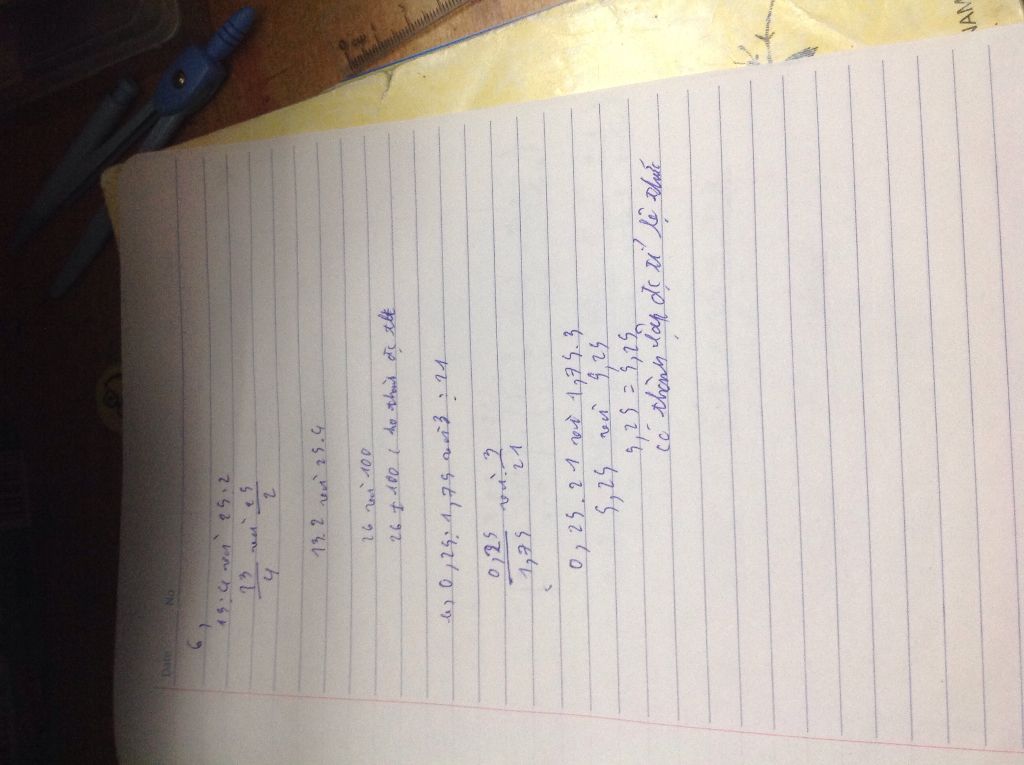 Date No
6,
13:4 với 25:2
13/4 với 25/2
13.2 với 25.4
26 với 100
26 ≠ 100 ( ko thành đc tlt
b, 0,25:1,75 với 3:21
0,25/1,75 với 3/21
0,25.21 với 1,75.3
5,25 với 5,25
5,25 = 5,25
có thành lập đc tỉ lệ thức
NAM